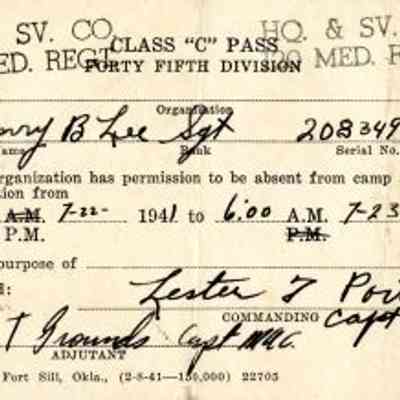 SV. CO. HQ. & SV.
ED. REGT. CLASS "C" PASS 120 MED. R
FORTY FIFTH DIVISION
Organization
nry B Lee Sgt 208349
Name Rank Serial No.
rganization has permission to be absent from camp
tion from
A.M. 7-22- 1941 to 6:00 A.M. 7-23
P.M. P.M.
purpose of
l:
Lester F Poi
COMMANDING Capt
T Grounds Capt MAC.
ADJUTANT
Fort Sill, Okla., (2-8-41—150,000) 22705